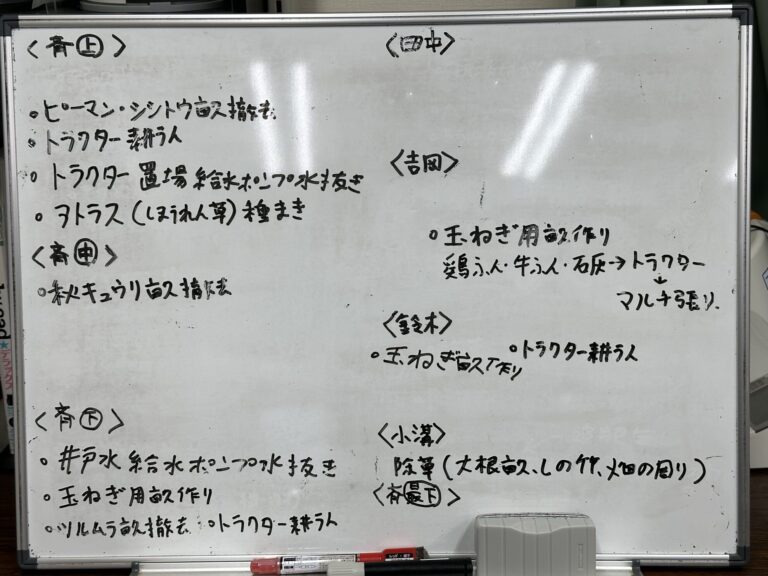 <斉㊤>
・ピーマン・シシトウ畝撤去
・トラクター耕うん
・トラクター置場給水ポンプ水抜き
・アトラス(ほうれん草)種まき
<斉㊥>
・秋キュウリ畝撤去
<斉㊦>
・井戸水給水ポンプ水抜き
・玉ねぎ用畝作り
・ツルムラ畝撤去 ・トラクター耕うん
<田中>
<吉岡>
・玉ねぎ用畝作り
鶏ふん・牛ふん・石灰→トラクター
↓
マルチ張り
<鈴木>
・玉ねぎ畝作り ・トラクター耕うん
<小溝>
除草(大根畝、しの竹、畑の周り)
<斉最下>
デラックス